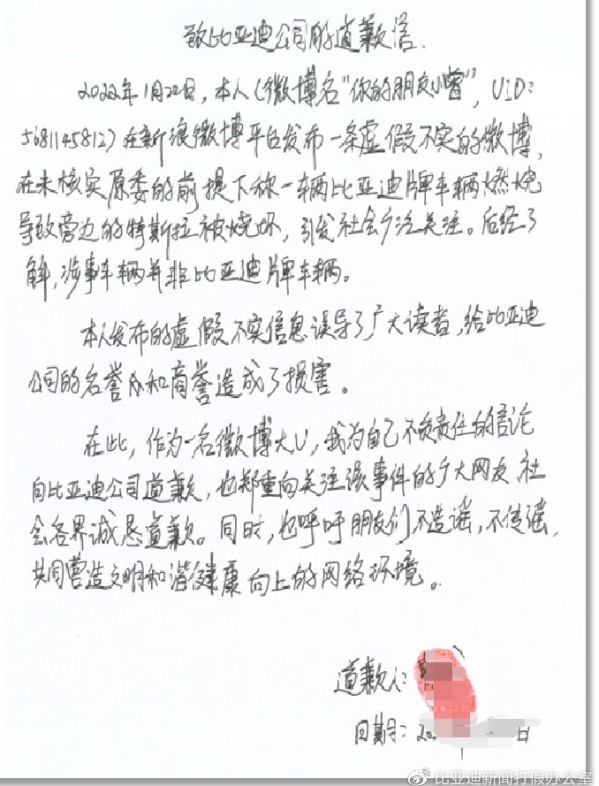 致比亚迪公司的道歉信
2022年1月22日,本人(微博名"你的朋友小曾",UID:
5681145812)在新浪微博平台发布一条虚假不实的微博,
在未核实原委的前提下称一辆比亚迪牌车辆燃烧
导致旁边的特斯拉被烧坏,引发社会广泛关注。后经了
解,涉事车辆并非比亚迪牌车辆。
本人发布的虚假不实信息误导了广大读者,给比亚迪
公司的名誉和商誉造成了损害。
在此,作为一名微博大V,我为自己不负责任的言论
向比亚迪公司道歉,也郑重向关注该事件的广大网友、社
会各界诚恳道歉。同时,也呼吁朋友们不造谣,不传谣,
共同营造文明和谐健康向上的网络环境。
道歉人:
日期:20 日
比亚迪新闻打假办公室